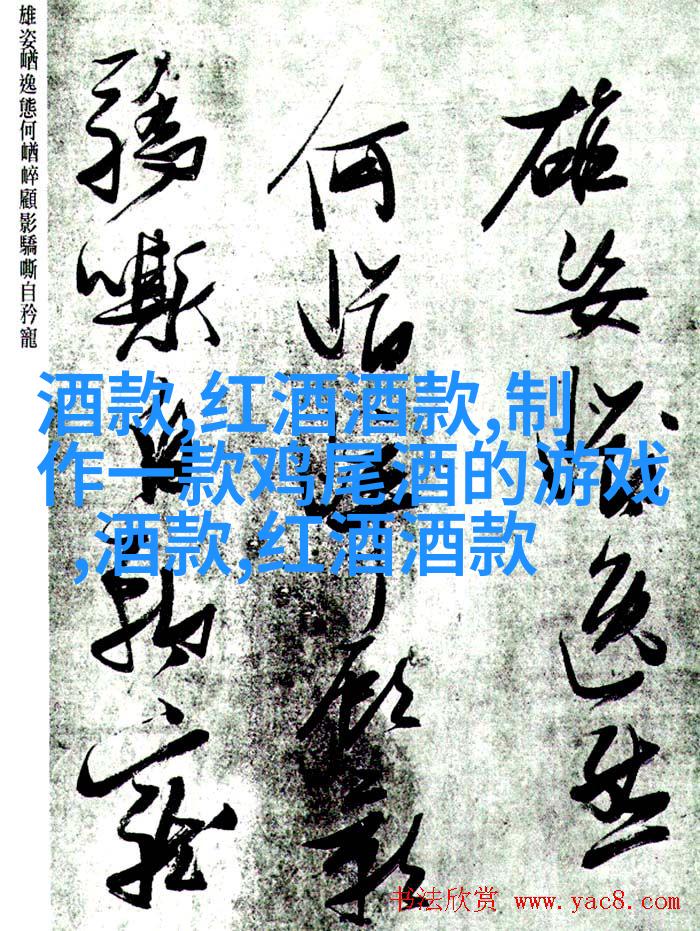 雄姿逸态
何顧影
驕嘶自矜寵
雄姿崷逸態何崷崪顧影驕嘶自矜寵
酒款,红酒酒款,制
作一款鸡尾酒的游戏
,酒款,红酒酒款
书法欣赏 www.yac8.com